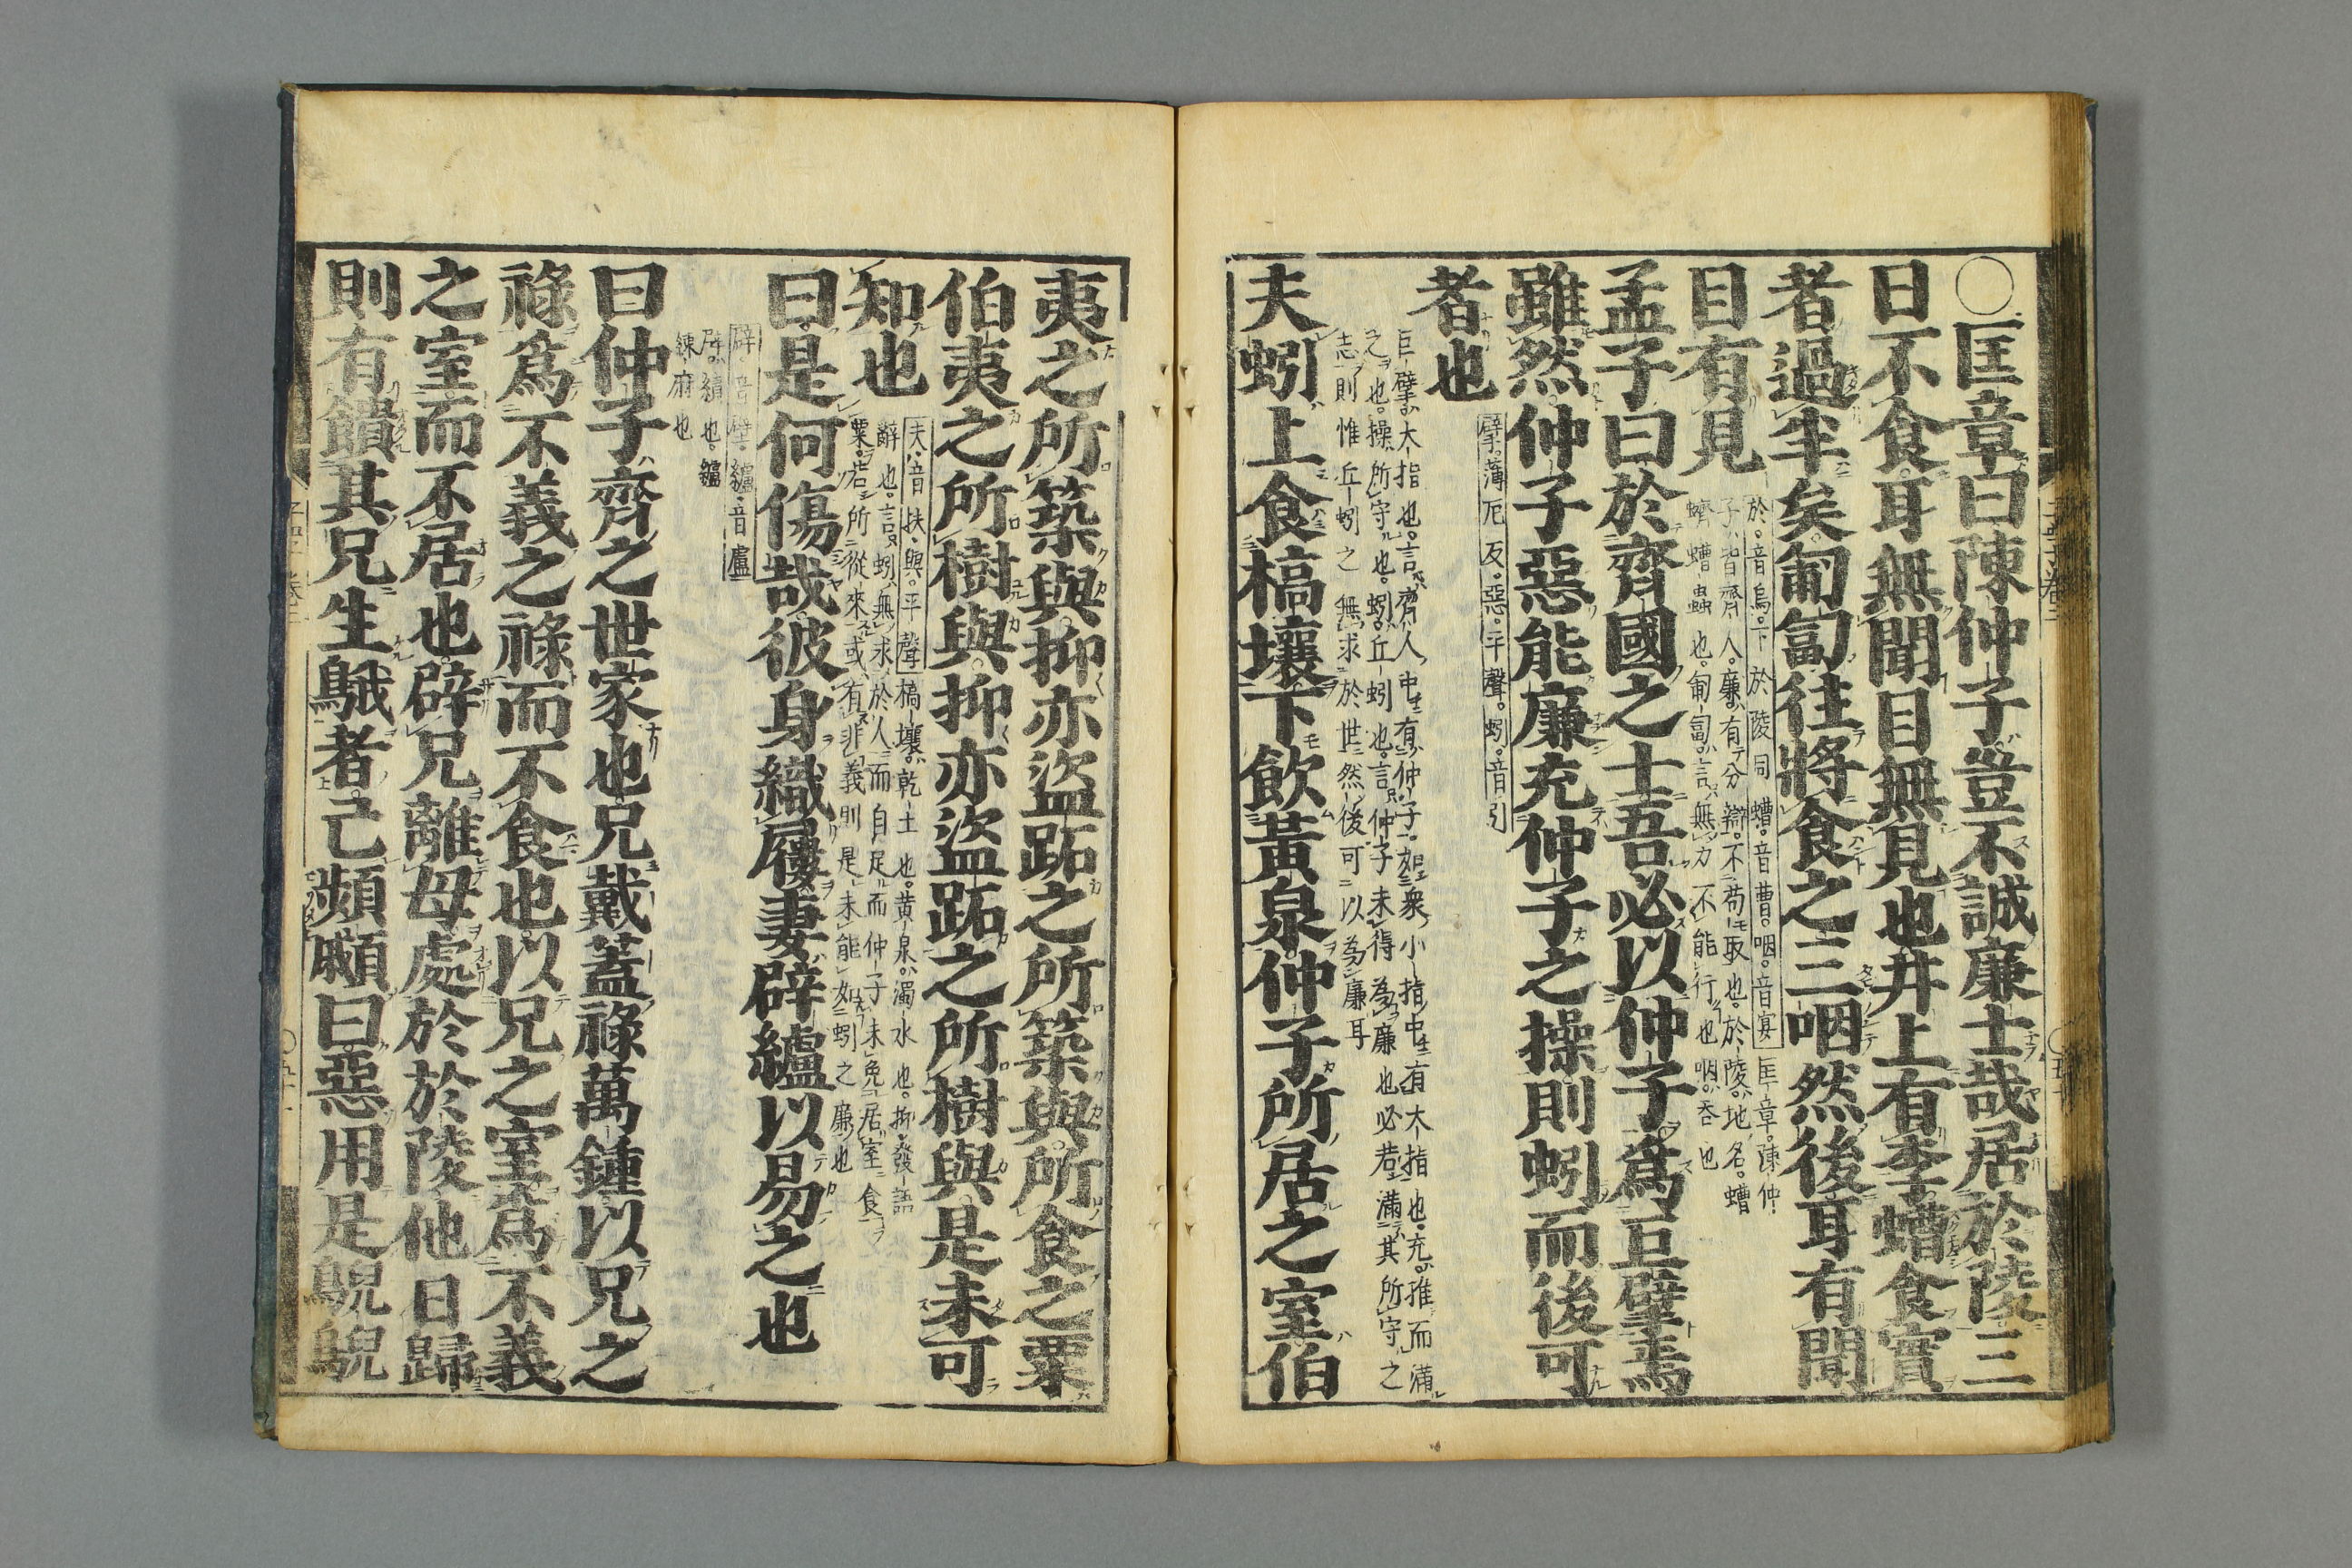 ○匡章曰陳仲子豈不誠廉士哉居於陵三
日不食耳無聞目無見也井上有李螬食實
者過半矣匍匐往將食之三咽然後耳有聞
目有見
於音烏下於陵同螬音曹咽音宴
匡章陳仲
子皆齊人廉有分辯不苟取也於陵地名螬
蠐螬蟲也匍匐言無力不能行也咽吞也
孟子曰於齊國之士吾必以仲子爲巨擘焉
雖然仲子惡能廉充仲子之操則蚓而後可
者也
擘薄厄反惡平聲蚓音引
巨擘大指也言齊人中有仲子如衆小指中有大指也充推而滿
之也操所守也蚓丘蚓也言仲子未得為廉也必若滿其所守之
志則惟丘蚓之無求於世然後可以為廉耳
夫蚓上食槁壤下飲黃泉仲子所居之室伯
夷之所築與抑亦盜跖之所築與所食之粟
伯夷之所樹與抑亦盜跖之所樹與是未可
知也
夫音扶與平聲
槁壤乾土也黄泉濁水也抑發語
辭也言蚓無求於人而自足而仲子未免居室食
粟若所從來或有非義則是未能如蚓之廉也
曰是何傷哉彼身織屨妻辟纑以易之也
辟音壁纑音盧
辟績也纑
練麻也
曰仲子齊之世家也兄戴蓋祿萬鍾以兄之
祿爲不義之祿而不食也以兄之室爲不義
之室而不居也辟兄離母處於於陵他日歸
則有饋其兄生鵝者己頻顣曰惡用是鶃鶃